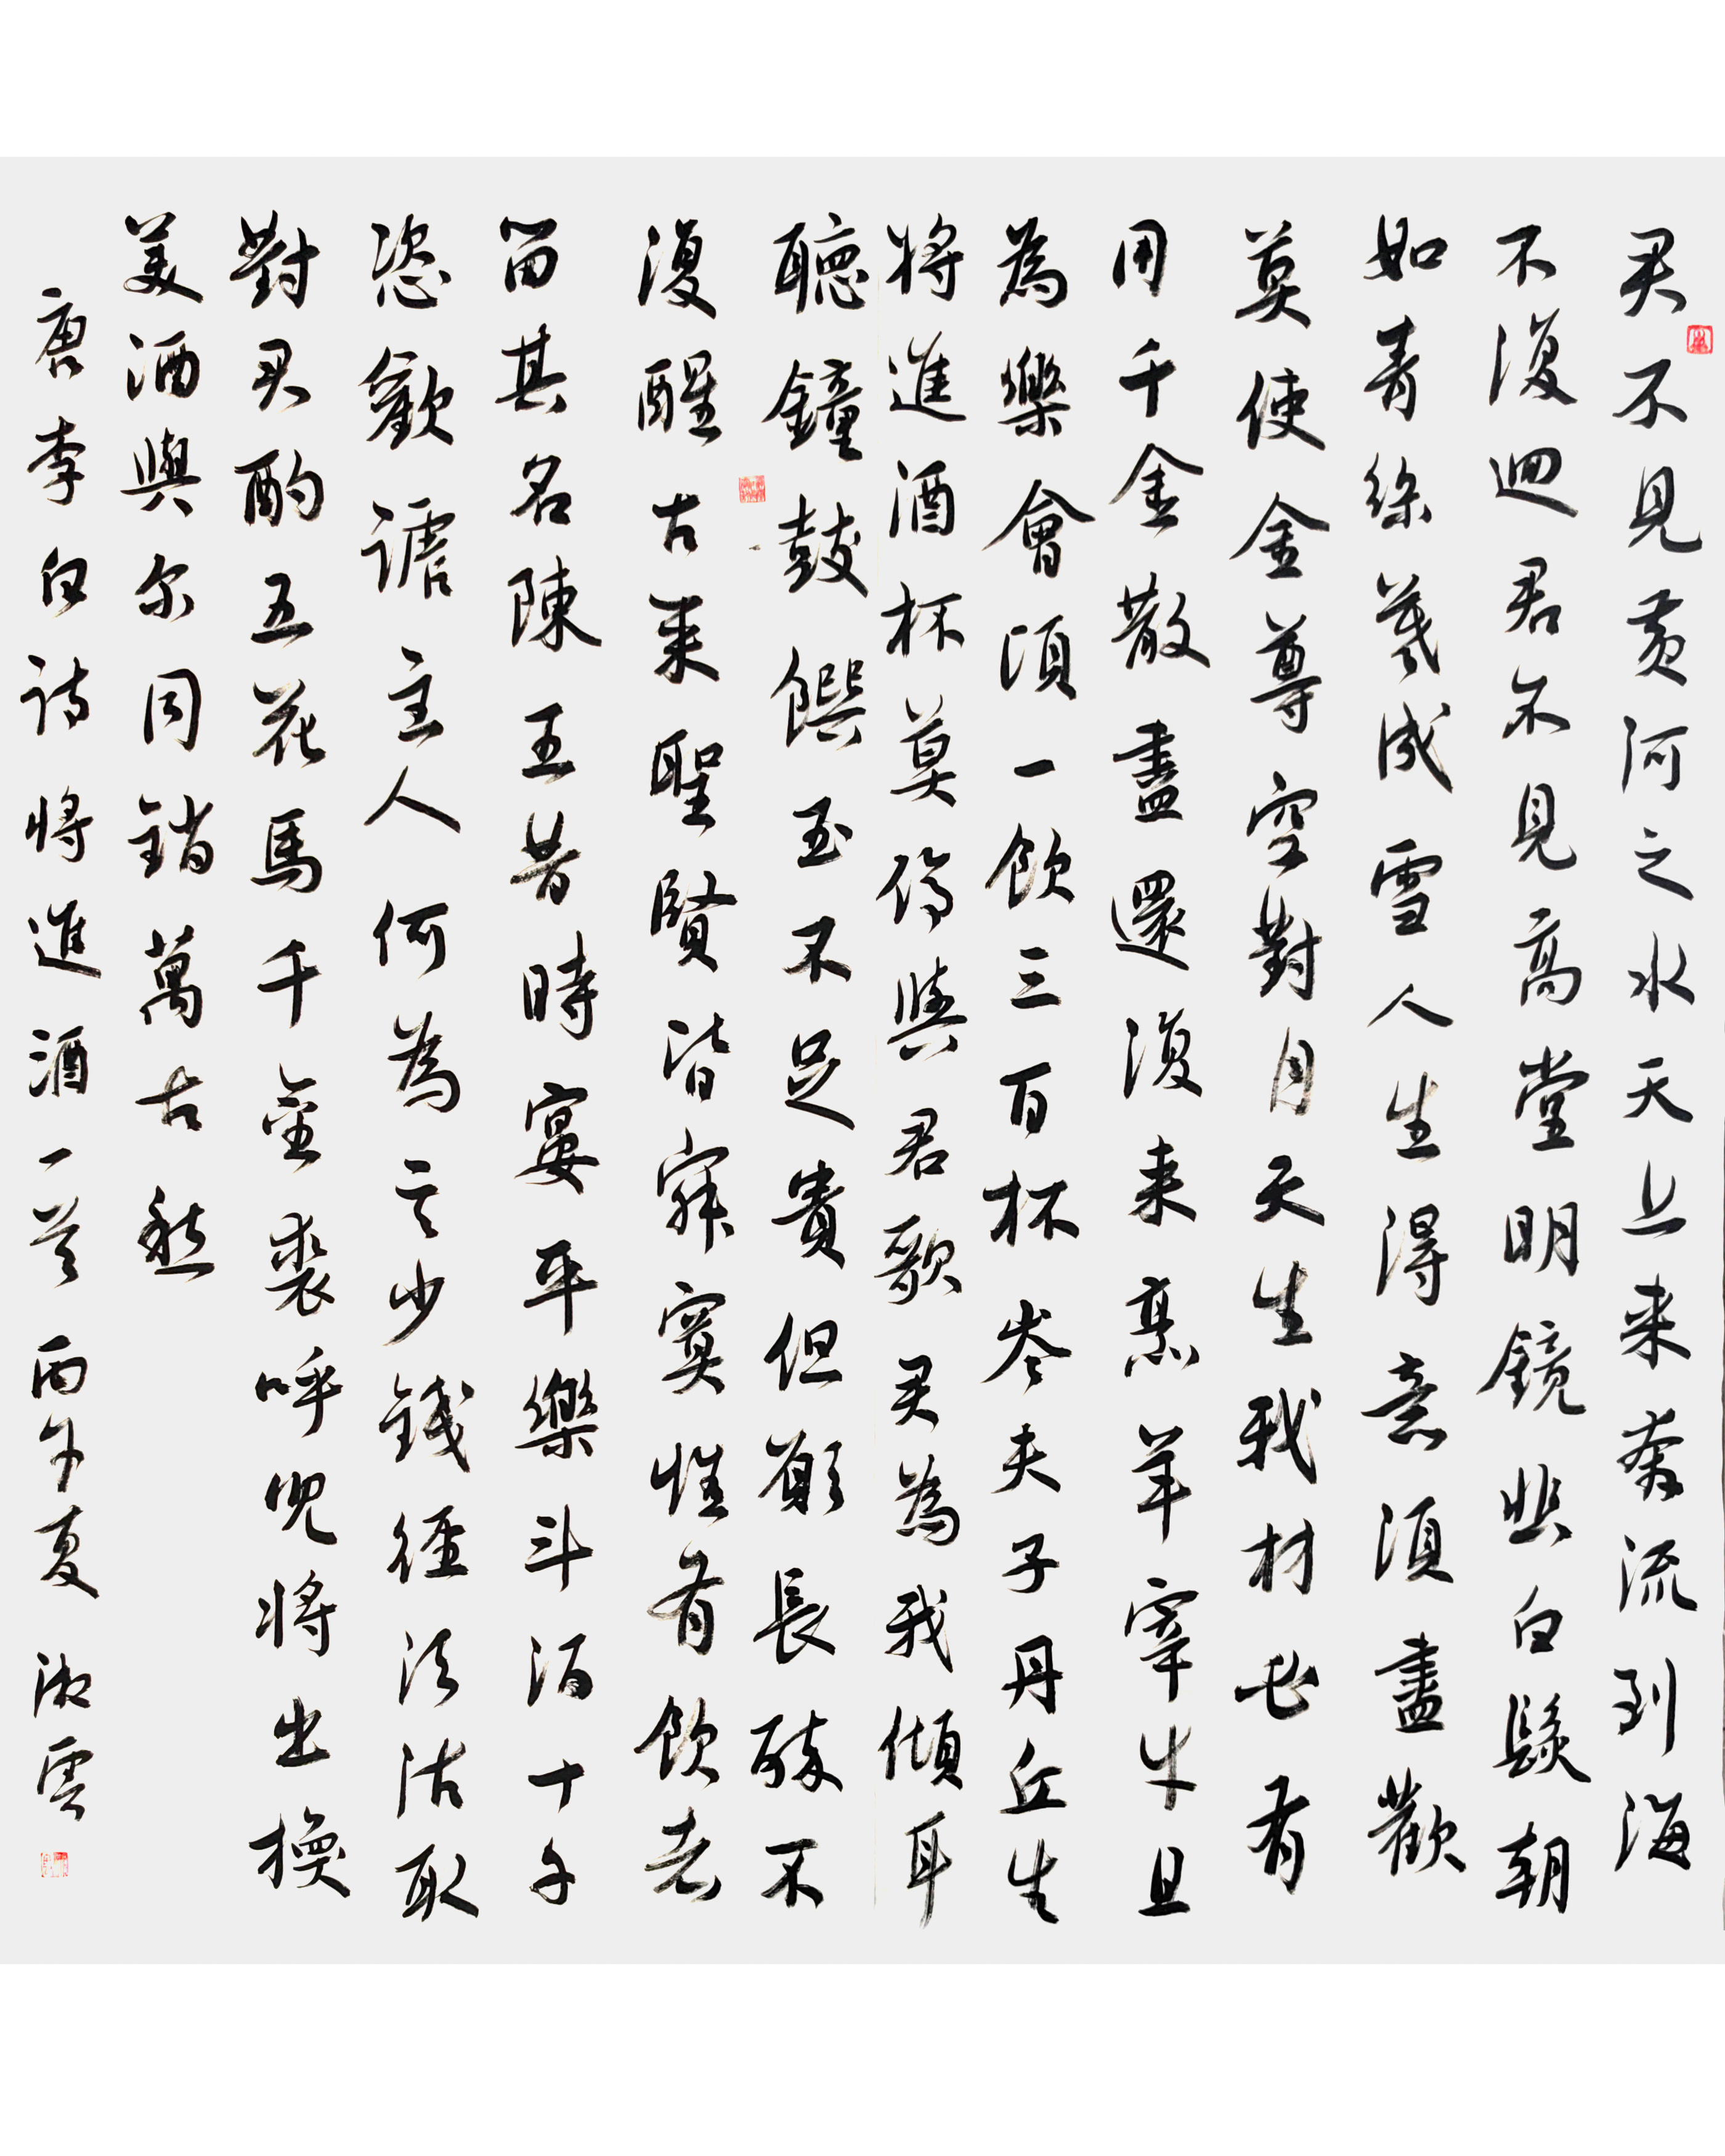 君不見黃河之水天上来奔流到海
不復迴君不見高堂明鏡悲白髮朝
如青絲暮成雪人生得意須盡歡
莫使金尊空對月天生我材必有
用千金散盡還復来烹羊宰牛且
為樂會須一飲三百杯岑夫子丹丘生
將進酒杯莫停與君歌君為我傾耳
聽鐘鼓饌玉不足貴但願長醉不
復醒古来聖賢皆寂寞惟有飲者
留其名陳王昔時宴平樂斗酒十千
恣歡謔主人何為言少錢徑須沽取
對君酌五花馬千金裘呼兒將出換
美酒與尔同銷萬古愁
唐李白詩將進酒一首丙午夏淑雲